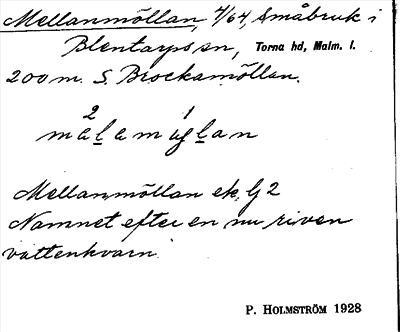 Mellanmöllan, 4/64, Småbruk i
Blentarps sn, Torna hd, Malm. l.
200 m. S. Brockamöllan.
2 1
Mellanmöllan ek. bl 2
Namnet efter en nu riven
vattenkvarn.
P. HOLMSTRÖM 1928